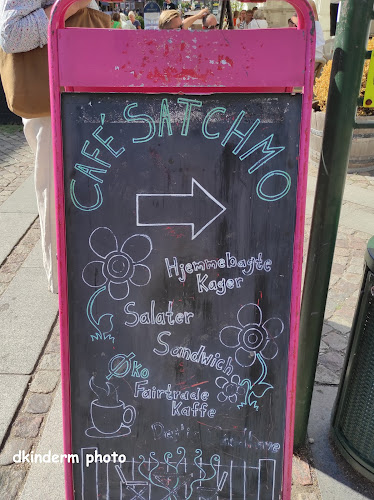 CAFÉ SATCHMO
Hjemmebagte
Kager
Salater
Sandwich
Øko
Fairtrade
Kaffe
dkinderm photo